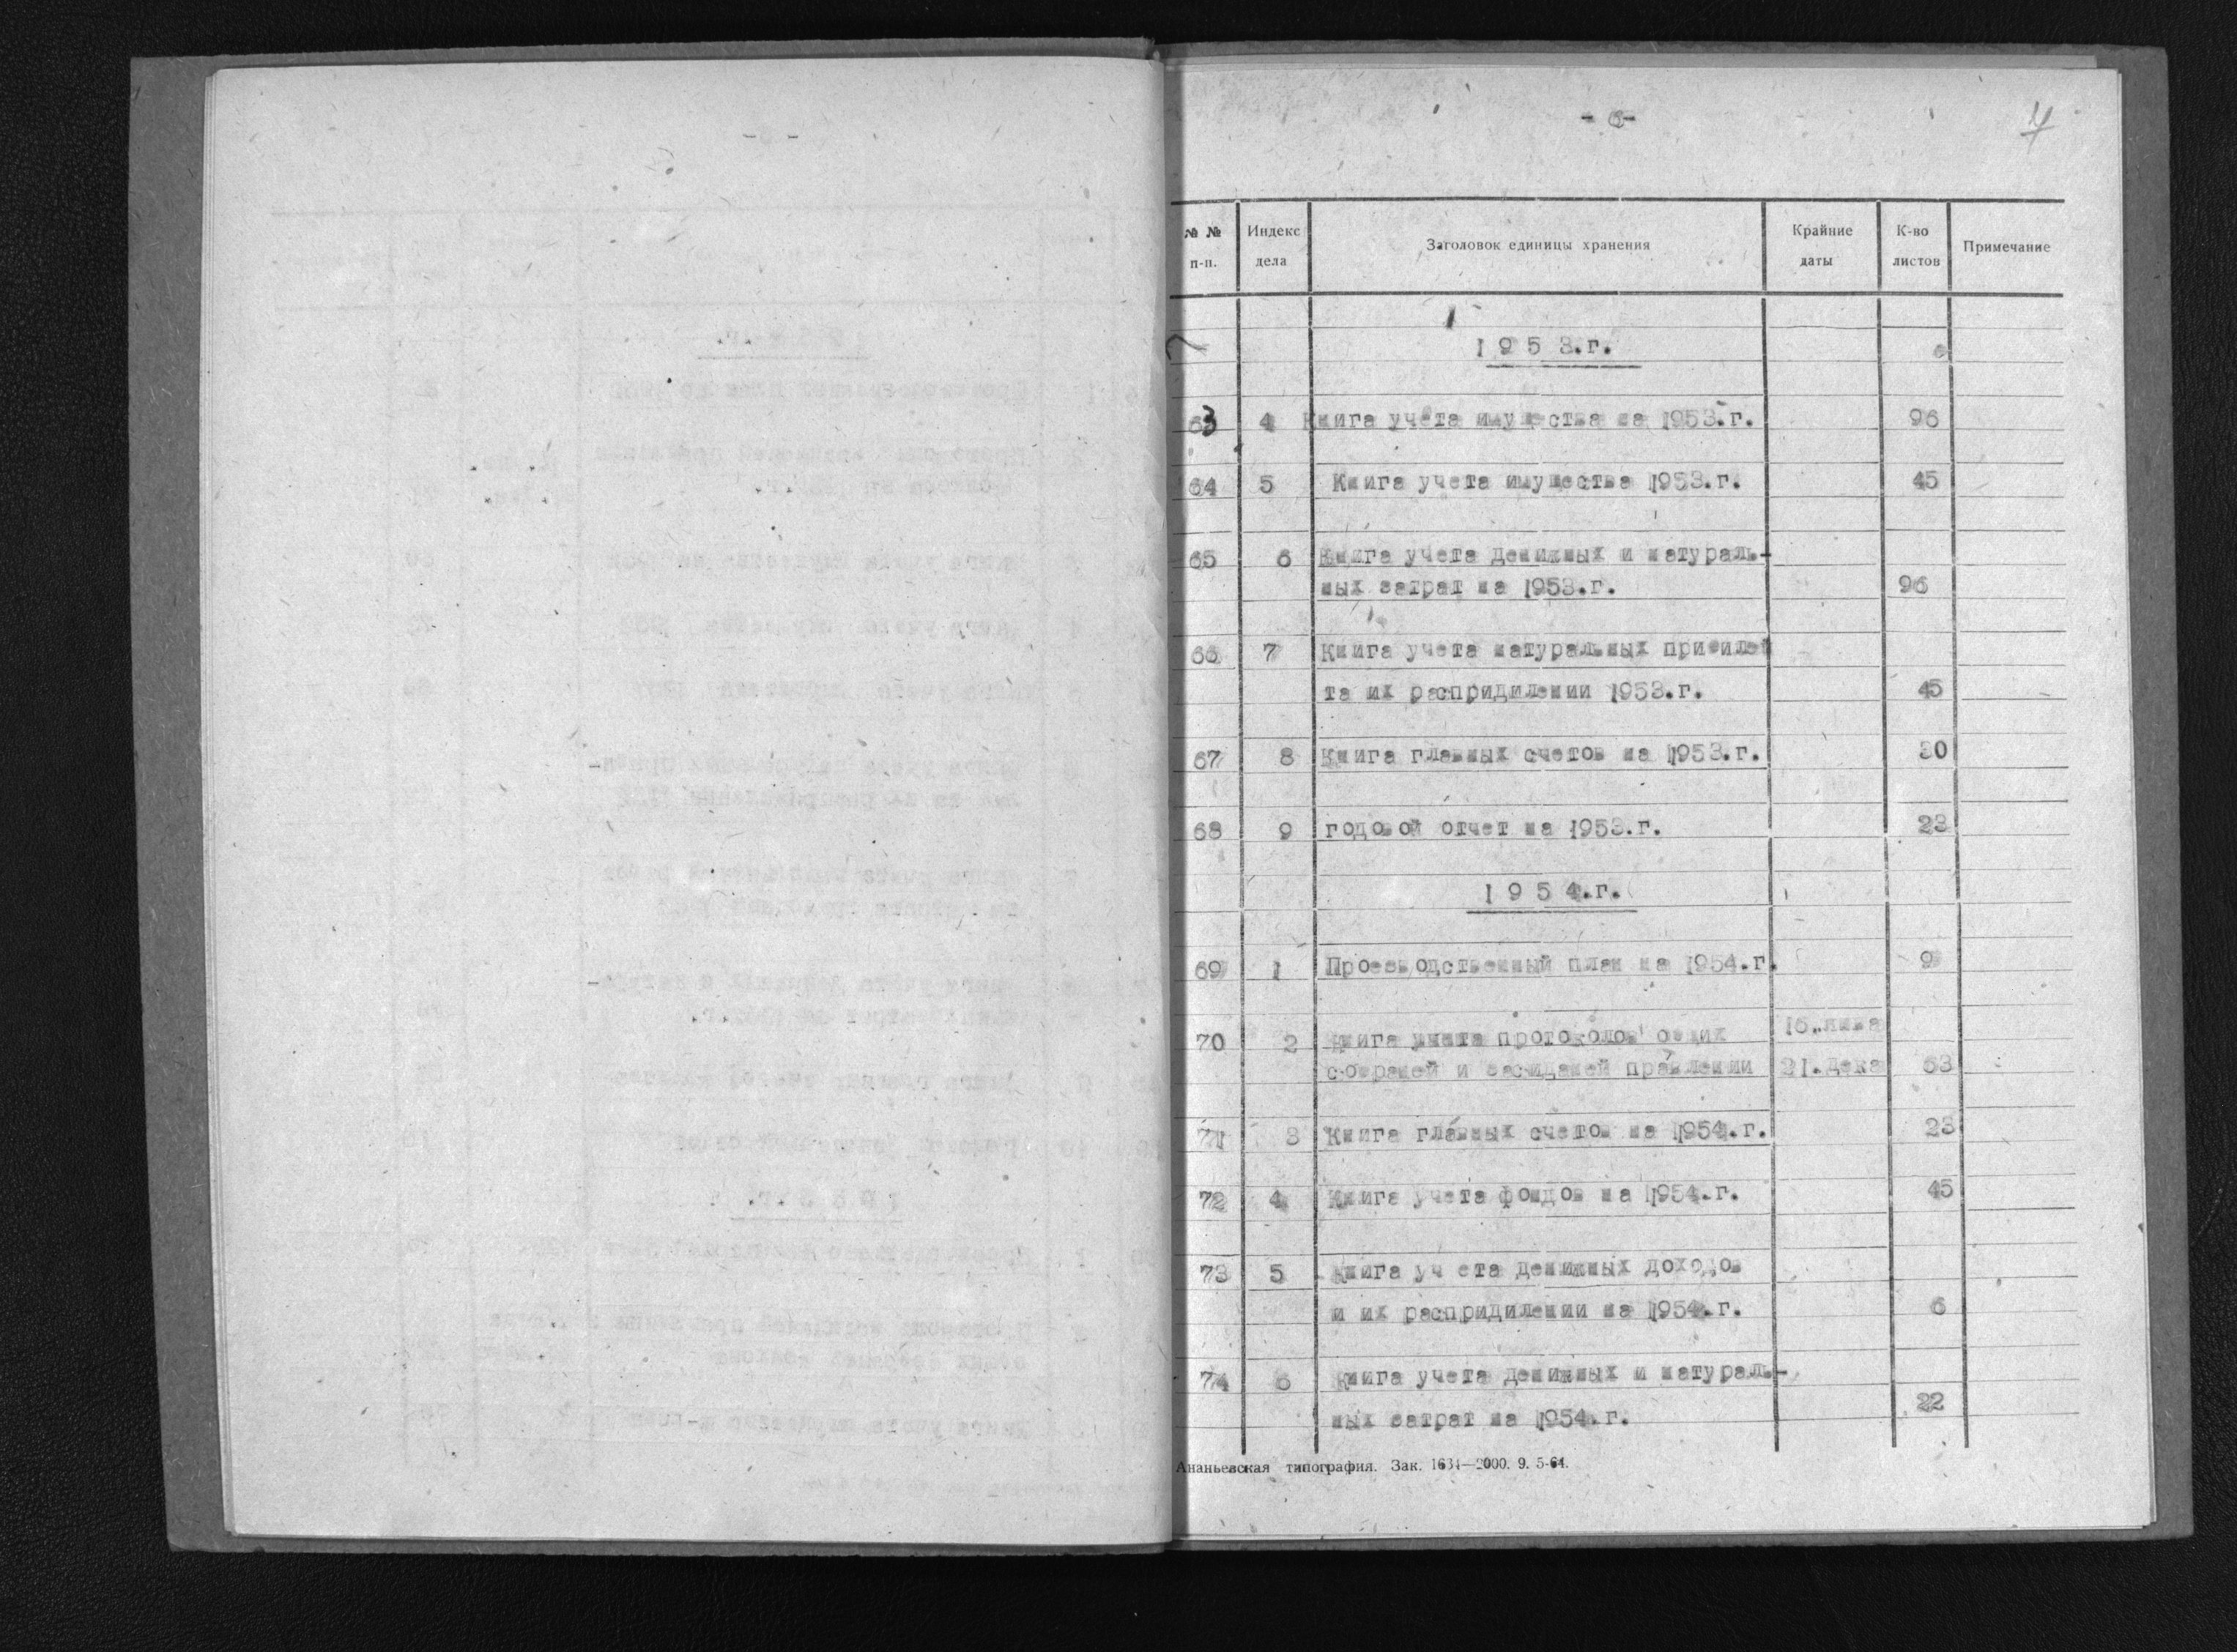 - 6 -
7
№ № п-п. Индекс дела Заголовок единицы хранения Крайние даты К-во листов Примечание
1953.г.
63 4 Книга учета имущества на 1953.г. 96
64 5 Книга учета имущества 1953.г. 45
65 6 Книга учета денижных и натураль-
ных затрат на 1953.г. 96
66 7 Книга учета натуральных
та их распридилении 1953.г. 45
67 8 Книга главных счетов на 1953.г. 30
68 9 годовой отчет на 1953.г. 23
1954.г.
69 1 план на 1954.г. 9
70 2 Книга протоколов общих
собраней и засиданей правлении 21.дека 63
71 3 Книга главных счетов на 1954.г. 23
72 4 Книга учета фондов на 1954.г. 45
73 5 Книга уч ета денижных доходов
и их распридилении на 1954.г. 6
74 6 Книга учета денижных и натураль-
ных затрат на 1954.г. 22
Ананьевская типография. Зак. 1634—2000. 9. 5-64.